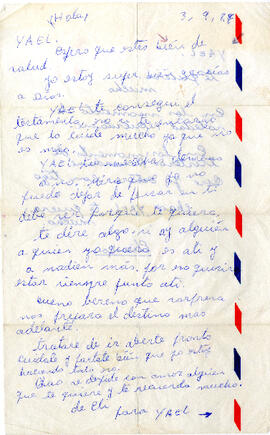 (Hola) 3,9,84
YAEL.
Espero que estes bién de
salud.
Yo estoy super bién gracias
a Dios.
YAEL te consegui el
testamento, no
que lo cuide mucho ya que
es mio.
YAEL
o no. que yo no
puedo dejar de pensar en ti
debe ser porque te quiero.
te dire algo, si ay alguien
a quien yo quiero es ati y
a nadien más. por eso quiero
estar siempre junto ati.
bueno beremo que sorpresa
nos prepara el destino mas
adelante.
tratare de ir aberte pronto
cuidate y portate bién que yo estoy
haciendo todo
Chao se despide con amor alguien
que te quiere y te recuerda mucho.
de Eli
para YAEL →